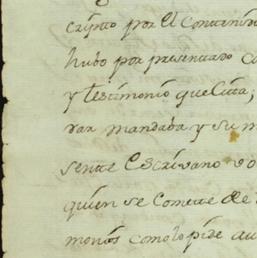 cripto por el contenido
hubo por presentado
y testimonio que cita,
rar mandaba y su m
sente Escrivano
quien se comete de
monio como lo pide au